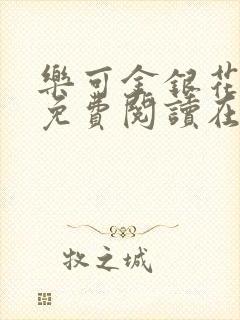 樂可金銀花
免費閱讀在
牧之城